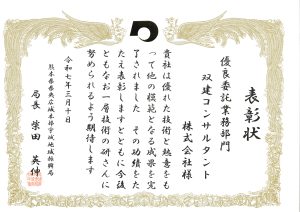 表彰状
優良委託業務部門
双建コンサルタント
株式会社様
貴社は優れた技術と熱意をも
って他の模範となる成果を完
了されました その功績をた
たえ表彰しますとともに今後
ともなお一層技術の研さんに
努められるよう期待します
令和七年三月十日
熊本県県央広域本部宇城地域振興局
局長 柴田 英伸